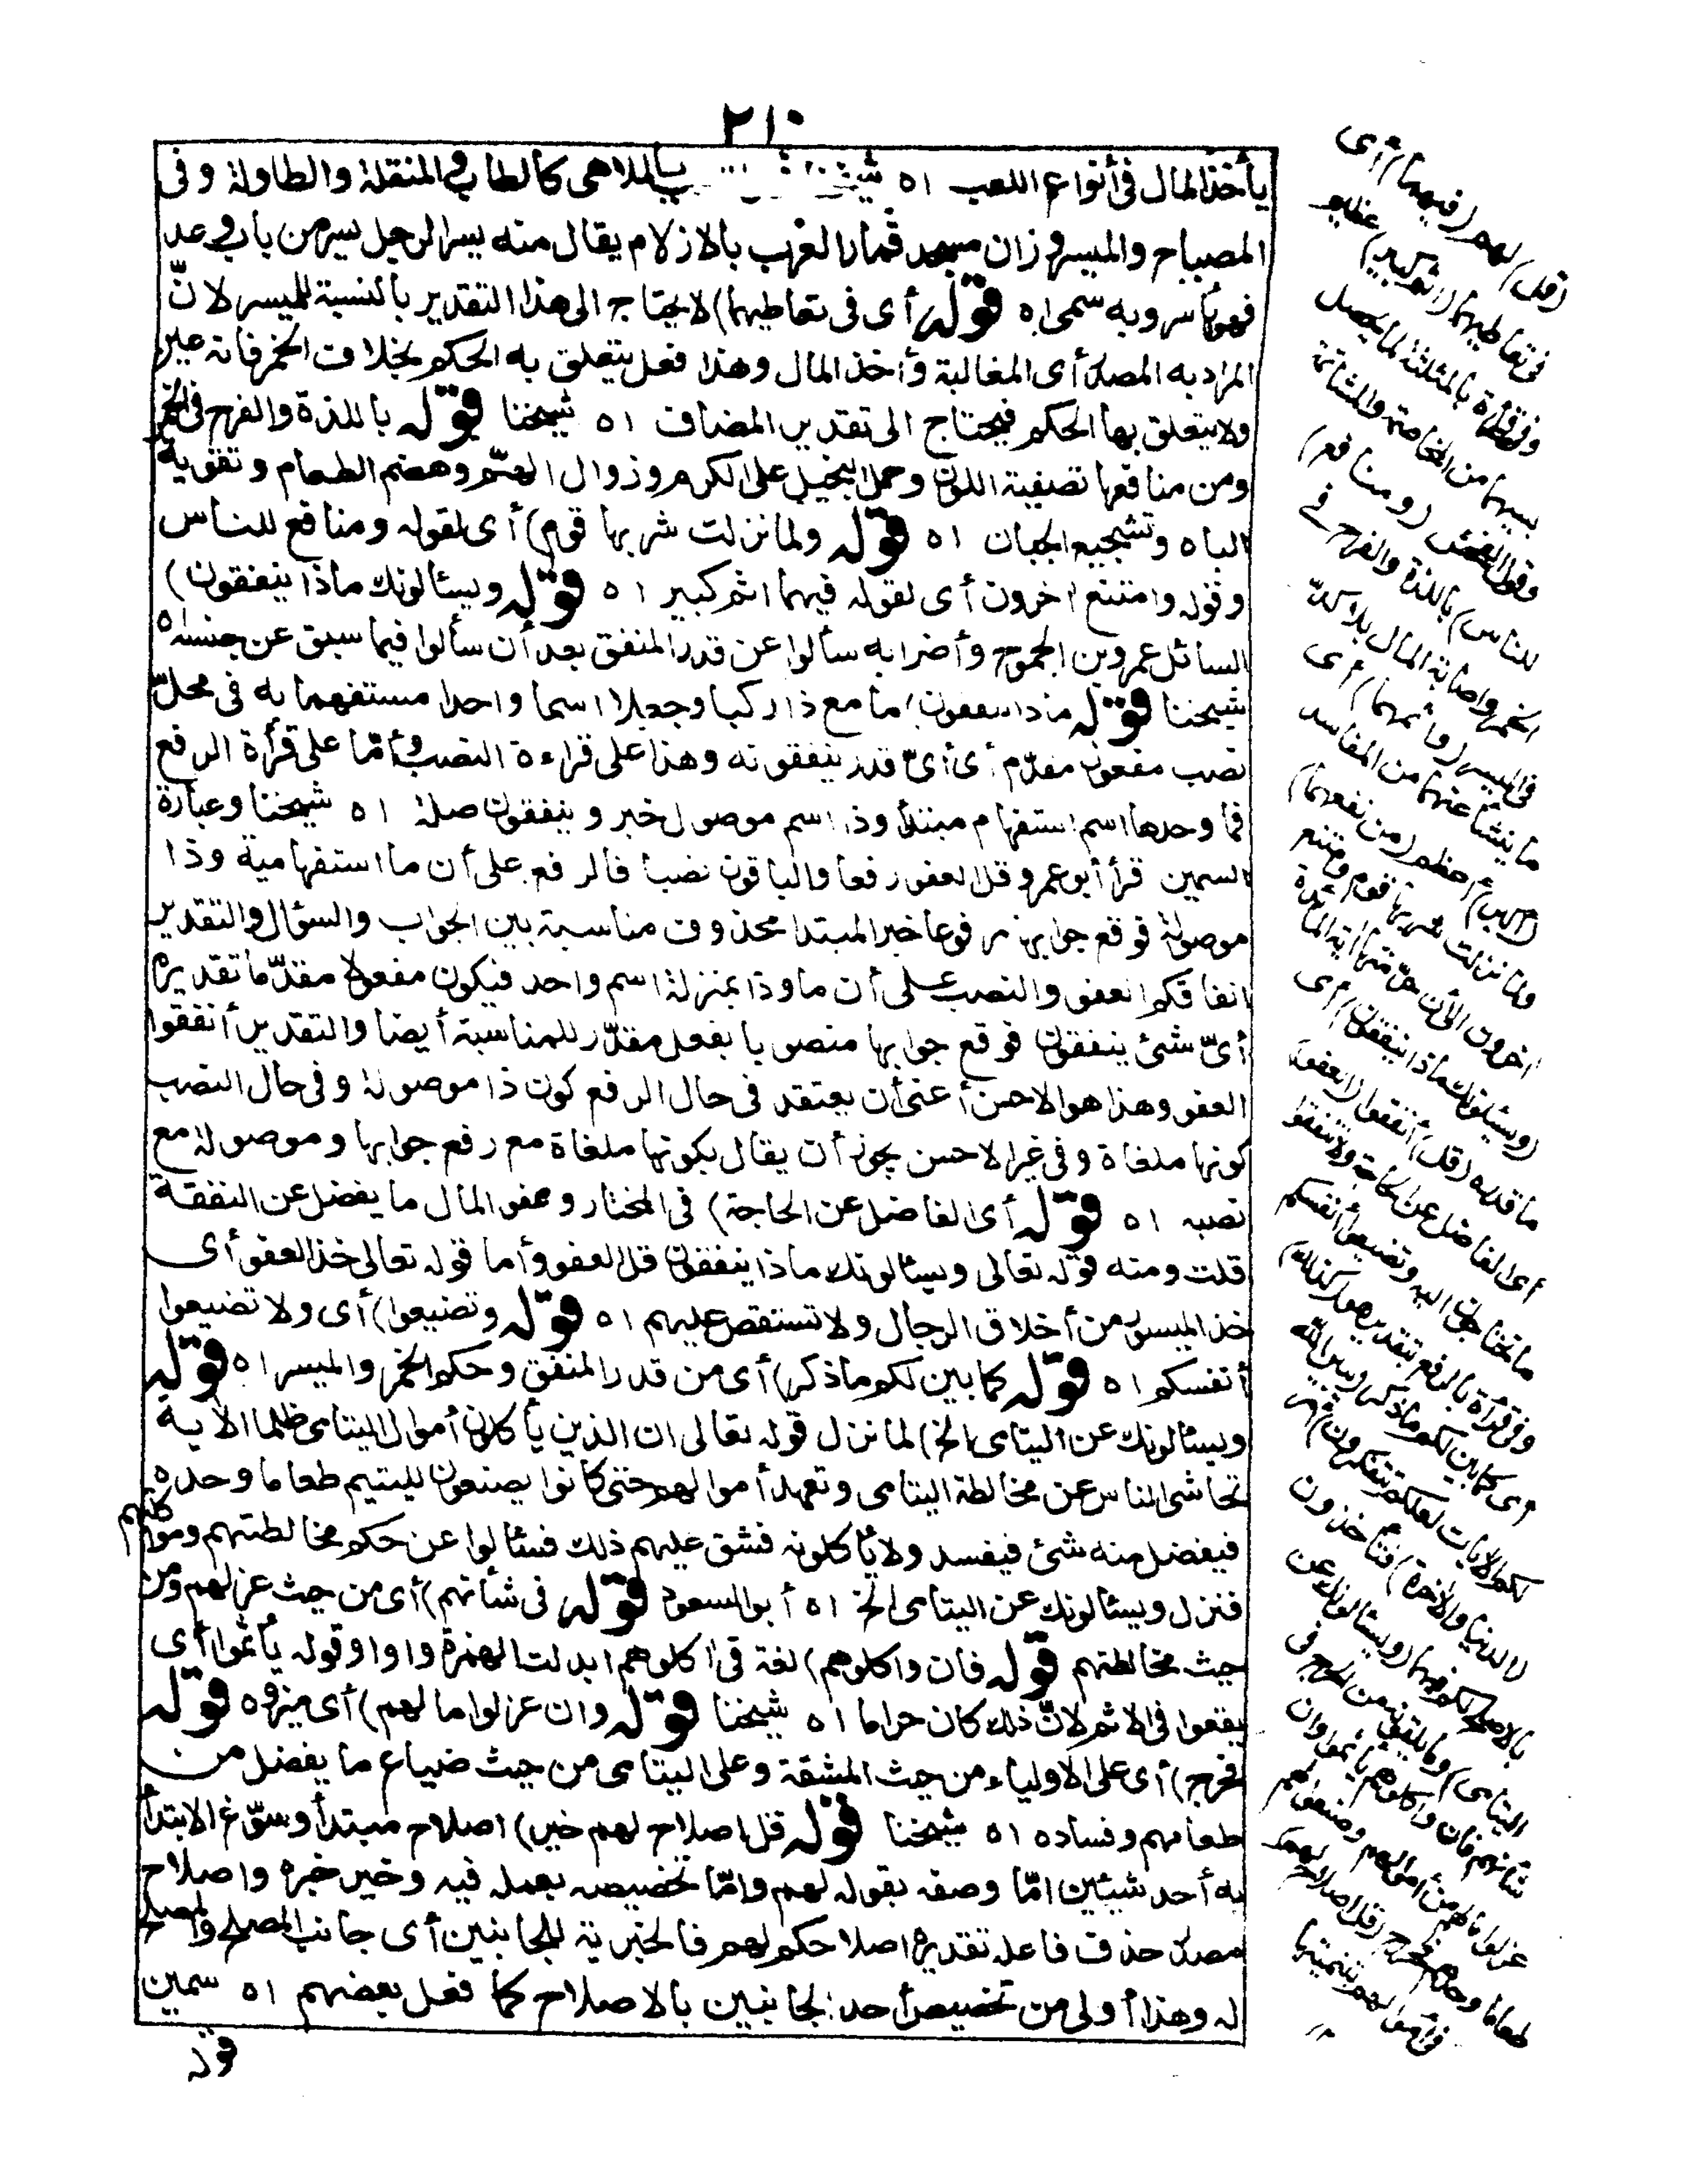 ٢١٠
يأخذ المال فى أنواع اللعب اه بالملاهى كالطاب والمنقلة والطاولة وفى
المصباح والميسر وزان مسجد قمار العرب بالازلام يقال منه يسر الرجل يسر من باب وعد
فهو ياسر وبه سمى اه قوله أى فى تعاطيهما) لا يحتاج الى هذا التقدير بالنسبة للميسر لانّ
المراد به المصدر أى المغالبة وأخذ المال وهذا فعل يتعلق به الحكم بخلاف الخمر فانه عين
ولا يتعلق بها الحكم فيحتاج الى تقدير المضاف اه شيخنا قوله باللذة والفرح فى الخمر
ومن منافعها تصفية اللون وحمل البخيل على الكرم وزوال الهمّ وهضم الطعام وتقوية
الباه وتشجيع الجبان اه قوله ولما نزلت شربها قوم) أى لقوله ومنافع للناس
وقوله وامتنع اخرون أى لقوله فيهما اثم كبير اه قوله ويسئالونك ماذا ينفقون)
السائل عمرو بن الجموح وأضرابه سألوا عن قدر المنفق بعد أن سألوا فيما سبق عن جنسه اه
شيخنا قوله ماذا ينفقون) ما مع ذا ركبا وجعلا اسما واحدا مستفهما به فى محلّ
نصب مفعول مقدّم أى أىّ قدر ينفقونه وهذا على قراءة النصب وأمّا على قرأة الرفع
فما وحدها اسم استفهام مبتدأ وذا اسم موصول خبر وينفقون صلة اه شيخنا وعبارة
السمين قرأ أبو عمرو قل العفو رفعا والباقون نصبا فالرفع على أن ما استفهامية وذا
موصولة فوقع جوابها مرفوعا خبر المبتدا محذوف مناسبة بين الجواب والسؤال والتقدير
انفاقكم العفو والنصب على أن ماوذا بمنزلة اسم واحد فيكون مفعولا مقدّما تقديره
أىّ شئ ينفقون فوقع جوابها منصوبا بفعل مقدّر للمناسبة أيضا والتقدير أنفقوا
العفو وهذا هو الاحسن أعنى أن يعتقد فى حال الرفع كون ذا موصولة وفى حال النصب
كونها ملغاة وفى غير الاحسن يجوز أن يقال بكونها ملغاة مع رفع جوابها وموصولة مع
نصبه اه قوله أى الفاضل عن الحاجة) فى المختار وعفو المال ما يفضل عن النفقة
قلت ومنه قوله تعالى ويسئالونك ماذا ينفقون قل العفو وأما قوله تعالى خذ العفو أى
خذ الميسور من أخلاق الرجال ولا تستقص عليهم اه قوله وتضيعوا) أى ولا تضيعوا
أنفسكم اه قوله كما بين لكم ماذكر) أى من قدر المنفق وحكم الخمر والميسر اه قوله
ويسئالونك عن اليتامى الخ) لما نزل قوله تعالى ان الذين يأكلون أموال اليتامى ظلما الآية
تحاشى الناس عن مخالطة اليتامى وتعهد أموالهم حتى كانوا يصنعون لليتيم طعاما وحده
فيفضل منه شئ فيفسد ولا يأكلونه فشق عليهم ذلك فسئالوا عن حكم مخالطتهم ومواكلتهم
فنزل ويسئالونك عن اليتامى الخ اه أبو السعود قوله فى شأنهم) أى من حيث عزلهم ومن
حيث مخالطتهم قوله فان واكلوهم) لغة فى اكلوهم ابدلت الهمزة واوا وقوله يأثموا أى
يقعوا فى الاثم لانّ ذلك كان حراما اه شيخنا قوله وان عزلوا ما لهم) أى ميزوه قوله
فحرج) أى على الاولياء من حيث المشقة وعلى اليتامى من حيث ضياع ما يفضل من
طعامهم وفساده اه شيخنا قوله قل اصلاح لهم خير) اصلاح مبتدأ وسوّغ الابتدأ
به أحد شيئين امّا وصفه بقوله لهم وامّا تخصيصه بعمله فيه وخير خبره واصلاح
مصدر حذف فاعله تقديره اصلاحكم لهم فالخيرية للجانبين أى جانب المصلح والمصلح
له وهذا أولى من تخصيص أحد الجانبين بالاصلاح كما فعل بعضهم اه سمين
قوله
(قل) لهم (فيهما) أى
فى تعاطيهما (اثم كبير) عظيم
وفى قرأة بالمثلثة لما يحصل
بسببهما من المخاصمة والمشاتمة
وقول الفحش (ومنافع)
للناس) باللذة والفرح فى
الخمر واصابة المال بلا كدّ
فى الميسر (واثمهما) أى
ما ينشأ عنهما من المفاسد
(اكبر) أعظم (من نفعهما)
ولما نزلت شربها قوم وامتنع
اخرون الى أن حرّمتها اية المائدة
(ويسئلونك ماذا ينفقون) أى
ما قدره (قل) أنفقوا (العفو)
أى الفاضل عن الحاجة ولا تنفقوا
ما تحتاجون اليه وتضيعوا أنفسكم
وفى قرأة بالرفع بتقدير هو (كذلك)
أى كما بين لكم ماذكر (يبين الله
لكم الايات لعلكم تتفكرون) فى
(الدنيا والاخرة) فتأخذون
بالاصلح لكم فيهما (ويسئالونك عن
اليتامى) وما يلقونه من الحرج فى
شأنهم فان واكلوهم يأثموا وان
عزلوا ما لهم من أموالهم وصنعوا لهم
طعاما وحدهم فحرج (قل اصلاح لهم)
فى أموالهم بتنميتها